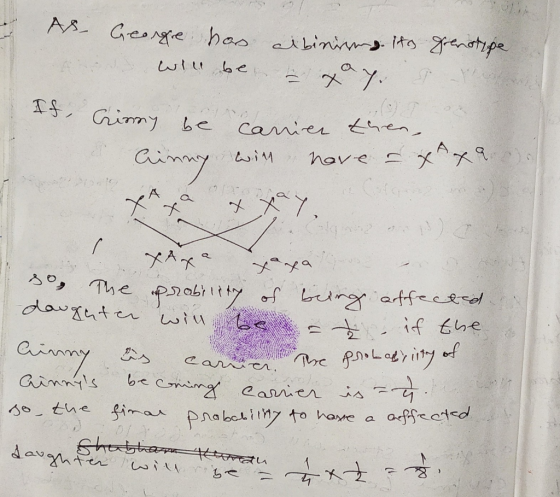 As- George has albinism, its genotype
will be = XᵃY.
If, Ginny be carrier then,
Ginny will have = XᴬXᵃ
XᴬXᵃ x XᵃY.
XᴬXᵃ XᵃXᵃ
so, The probility of being affected
daughter will be = 1/2, if the
Ginny is carrier. The probability of
Ginny's becoming carrier is = 1/4.
so- the final probability to have a affected
Shubham Kumar
daughter will be = 1/4 x 1/2 = 1/8.